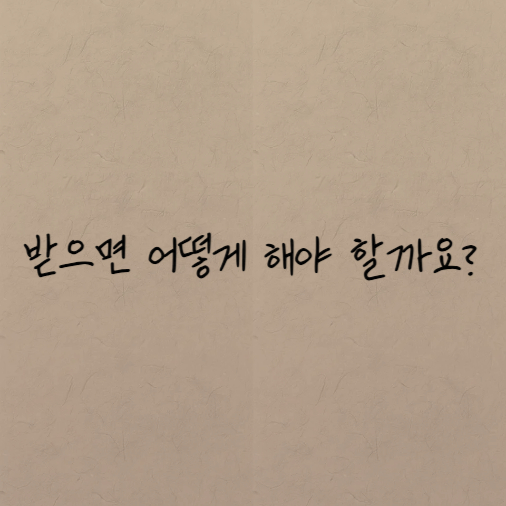 받으면 어떻게 해야 할까요?